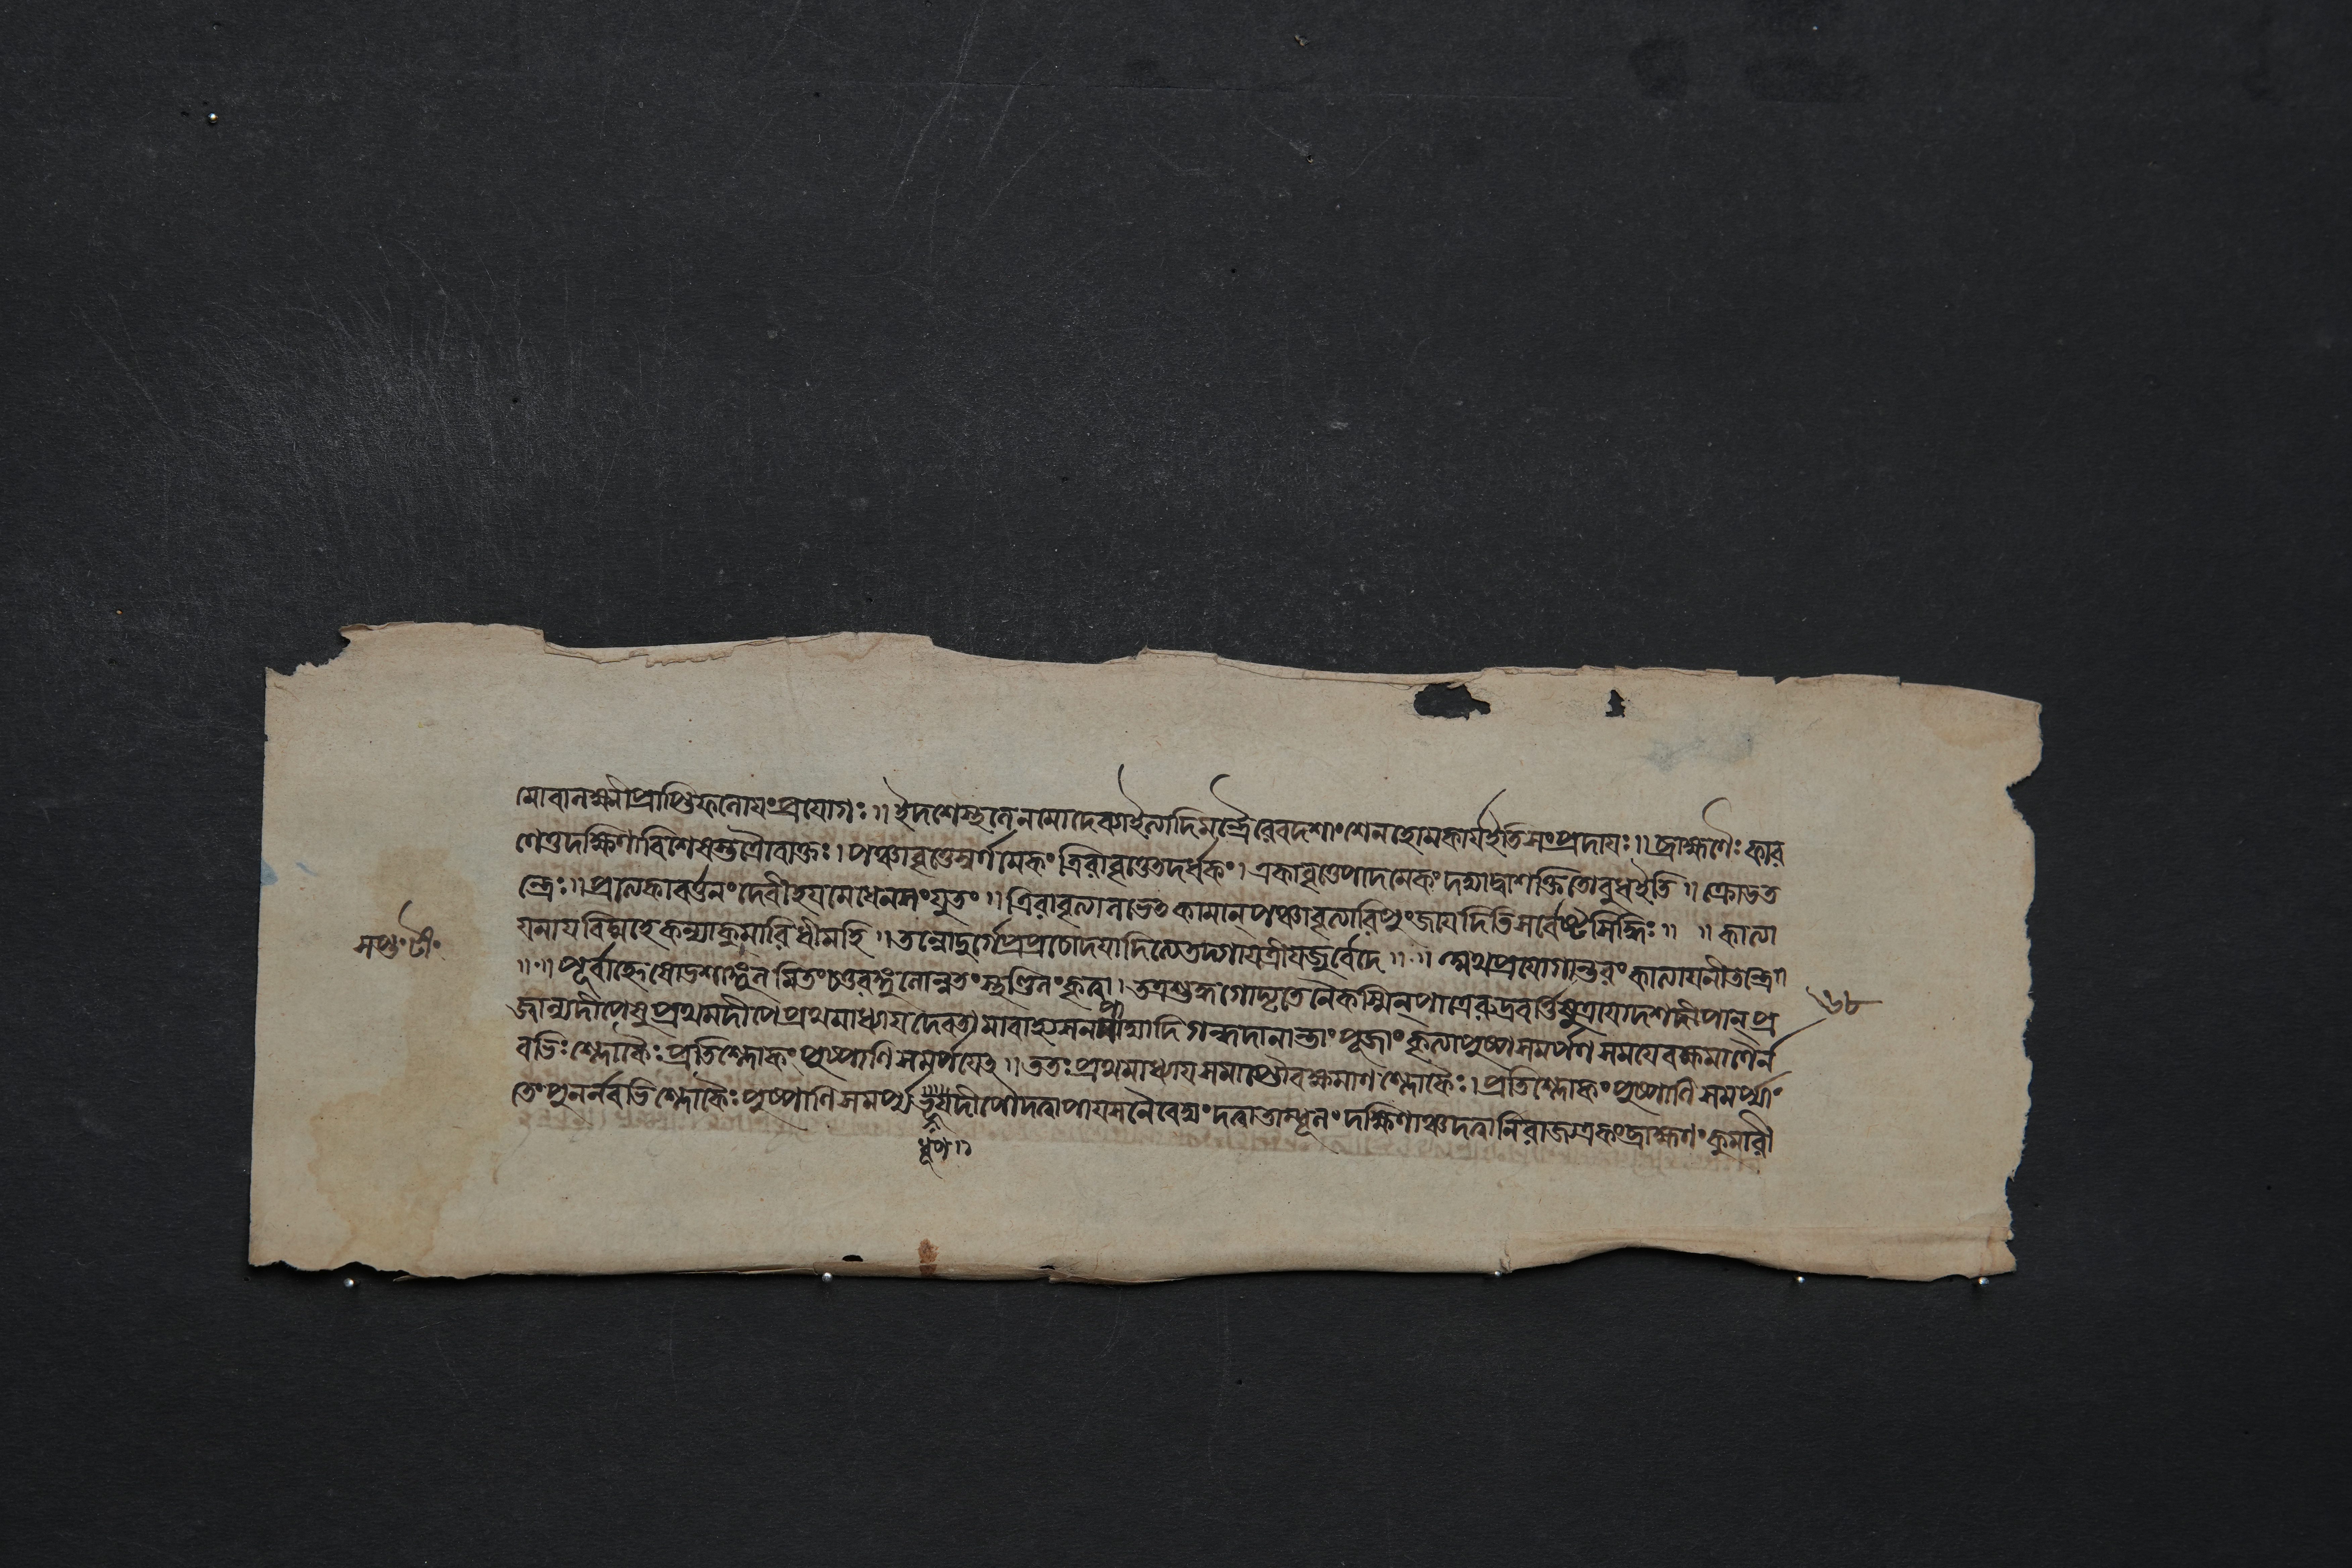 মোবানক্ষ্মীপ্রাপ্তিফলোযংপ্রযোগঃ॥ ইদশেস্থলেনমোদেব্যাইত্যাদিমন্ত্রৈরেবদশাংশেনহোমকার্যইতিসংপ্রদাযঃ॥ ব্রাহ্মণৈঃকার
ণেতুদক্ষিণাবিশেষস্তত্রৈবোক্তঃ। পঞ্চাবৃত্তেস্বর্ণমেকং ত্রিরাবৃত্তেতদর্ধকং। একাবৃত্তেপাদমেকং দদ্যাদ্বাশক্তিতোবুধইতি॥ ক্রোডত
ন্ত্রেঃ॥ প্রত্যেকাবর্ত্তনংদেবীহযমেধেনসংযুতং॥ ত্রিরাবৃত্যালভেৎকামান্ পঞ্চাবৃত্যারিপুংজযেদিতিসর্বেষ্টসিদ্ধিঃ॥ ॥ কাত্যা
যনাযবিদ্মহেকন্যাকুমারিধীমহি॥ তন্নোদুর্গেপ্রপ্রচোদযাদিত্যেতদ্গাযত্রীযজুর্বেদে॥ ॥ অথপ্রযোগান্তরং কাত্যাযনীতন্ত্রে
॥ ॥ পূর্বাহ্নেষোডশাঙ্গুলমিতংচতুরঙ্গুলোন্নতংস্থণ্ডিলংকৃত্বা। তত্রশুদ্ধগোঘৃতেনৈকস্মিন্ পাত্রেরুদ্রবর্ত্তিযুত্রাযোদশদীপান্ প্র
জ্বাল্যদীপেষুপ্রথমদীপেপ্রথমাধ্যাযদেবতামাবাহ্যাসনপাদ্যাদিগন্ধদানান্তাংপূজাংকৃত্যাপুষ্পসমর্পণসমযেবক্ষমাণৈর্ন
বভিঃশ্লোকৈঃপ্রতিশ্লোকংপুষ্পাণিসমর্পযেৎ॥ ততঃপ্রথমাধ্যাযসমাপ্তৌবক্ষমাণশ্লোকৈঃ। প্রতিশ্লোকংপুষ্পাণিসমর্প্যাং
তেপুনর্নবভিশ্লোকৈঃপুষ্পাণিসমর্প্যদীপৌদত্বাপাযসনৈবেদ্যংদত্বাতাম্বূলংদক্ষিণাঞ্চদত্বানিরাজ্যএকংব্রাহ্মণংকুমারী
ধূপ॥
সপ্তঃটীঃ
৬৮